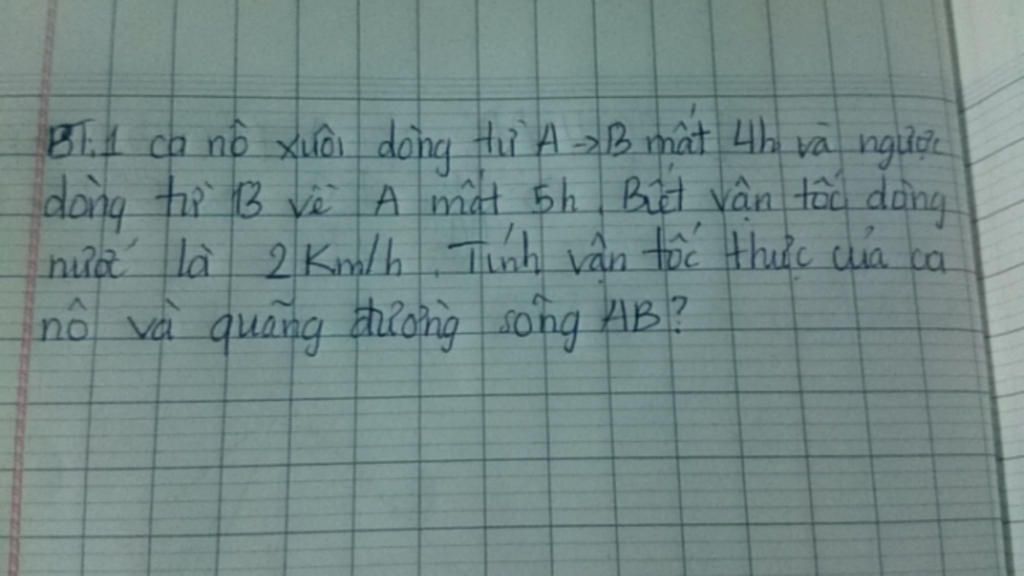 BT.1 ca nô xuôi dòng từ A → B mất 4h và ngược
dòng từ B về A mất 5h. Biết vận tốc dòng
nước là 2 Km/h. Tính vận tốc thực của ca
nô và quãng đường sông AB?